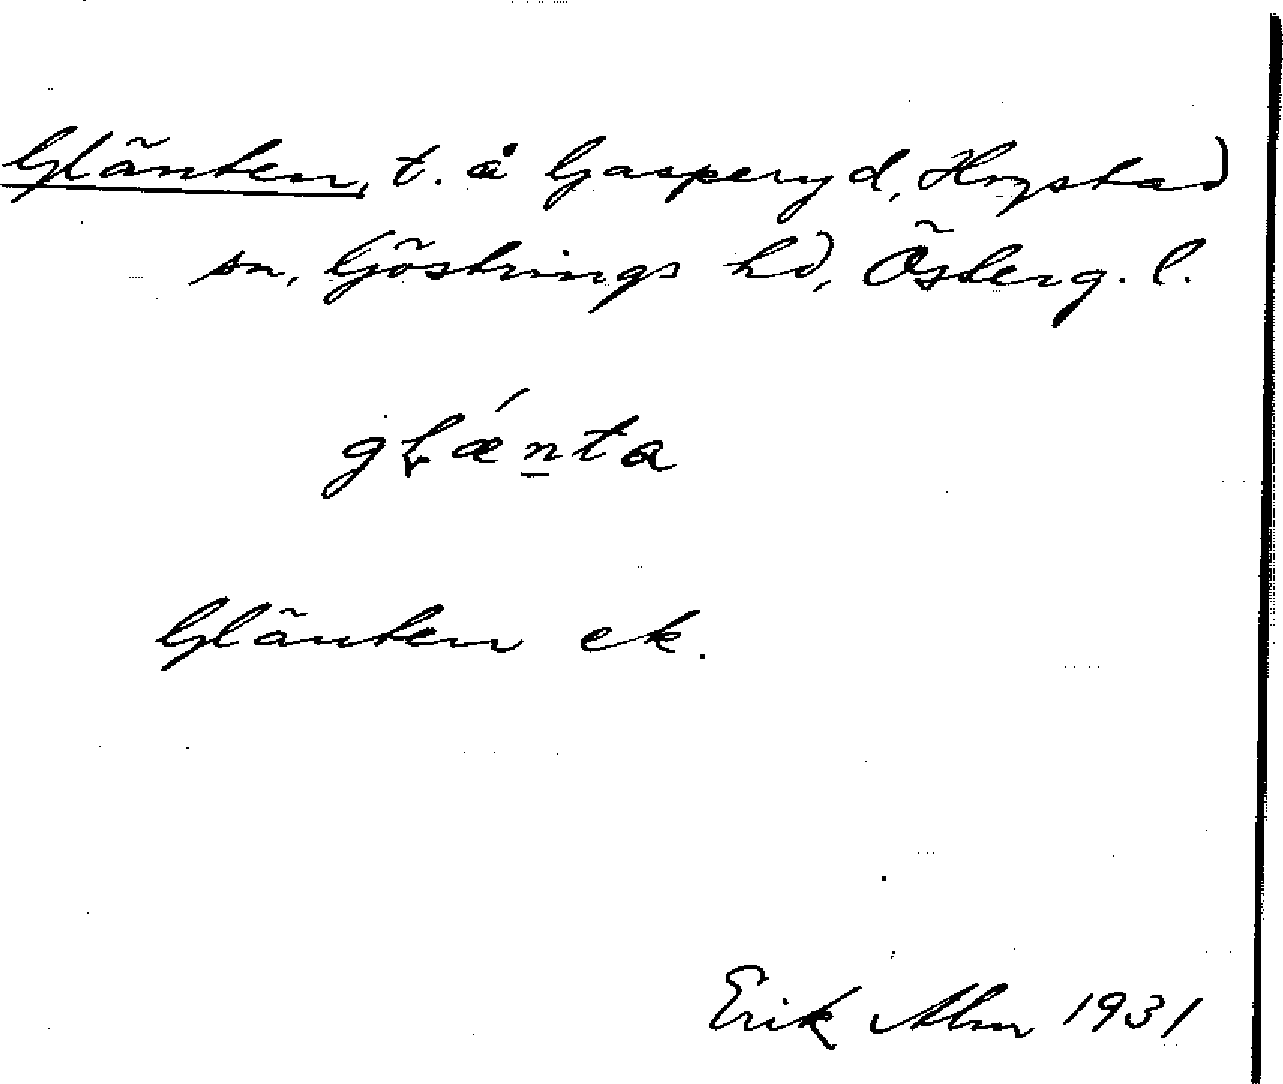 Glänten, t. å Gasperyd, Hogstad
sn, Göstrings hd, Österg. l.
gɫǽn̲ta
Glänten ek.
Erik Alm 1931